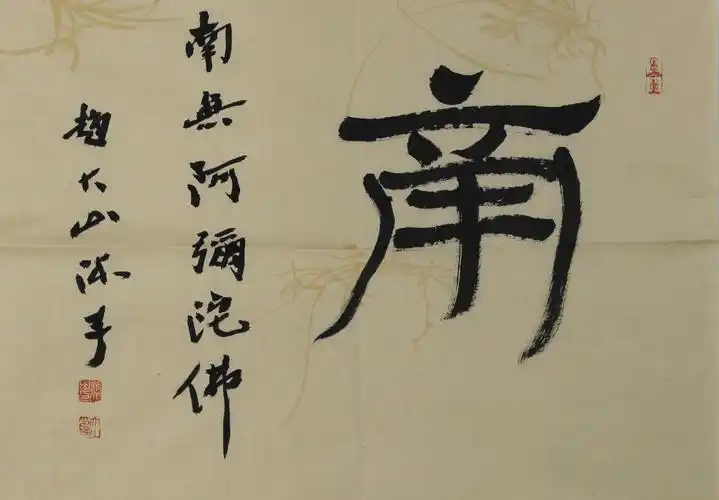 南
南無阿彌陀佛
趙大山沐手